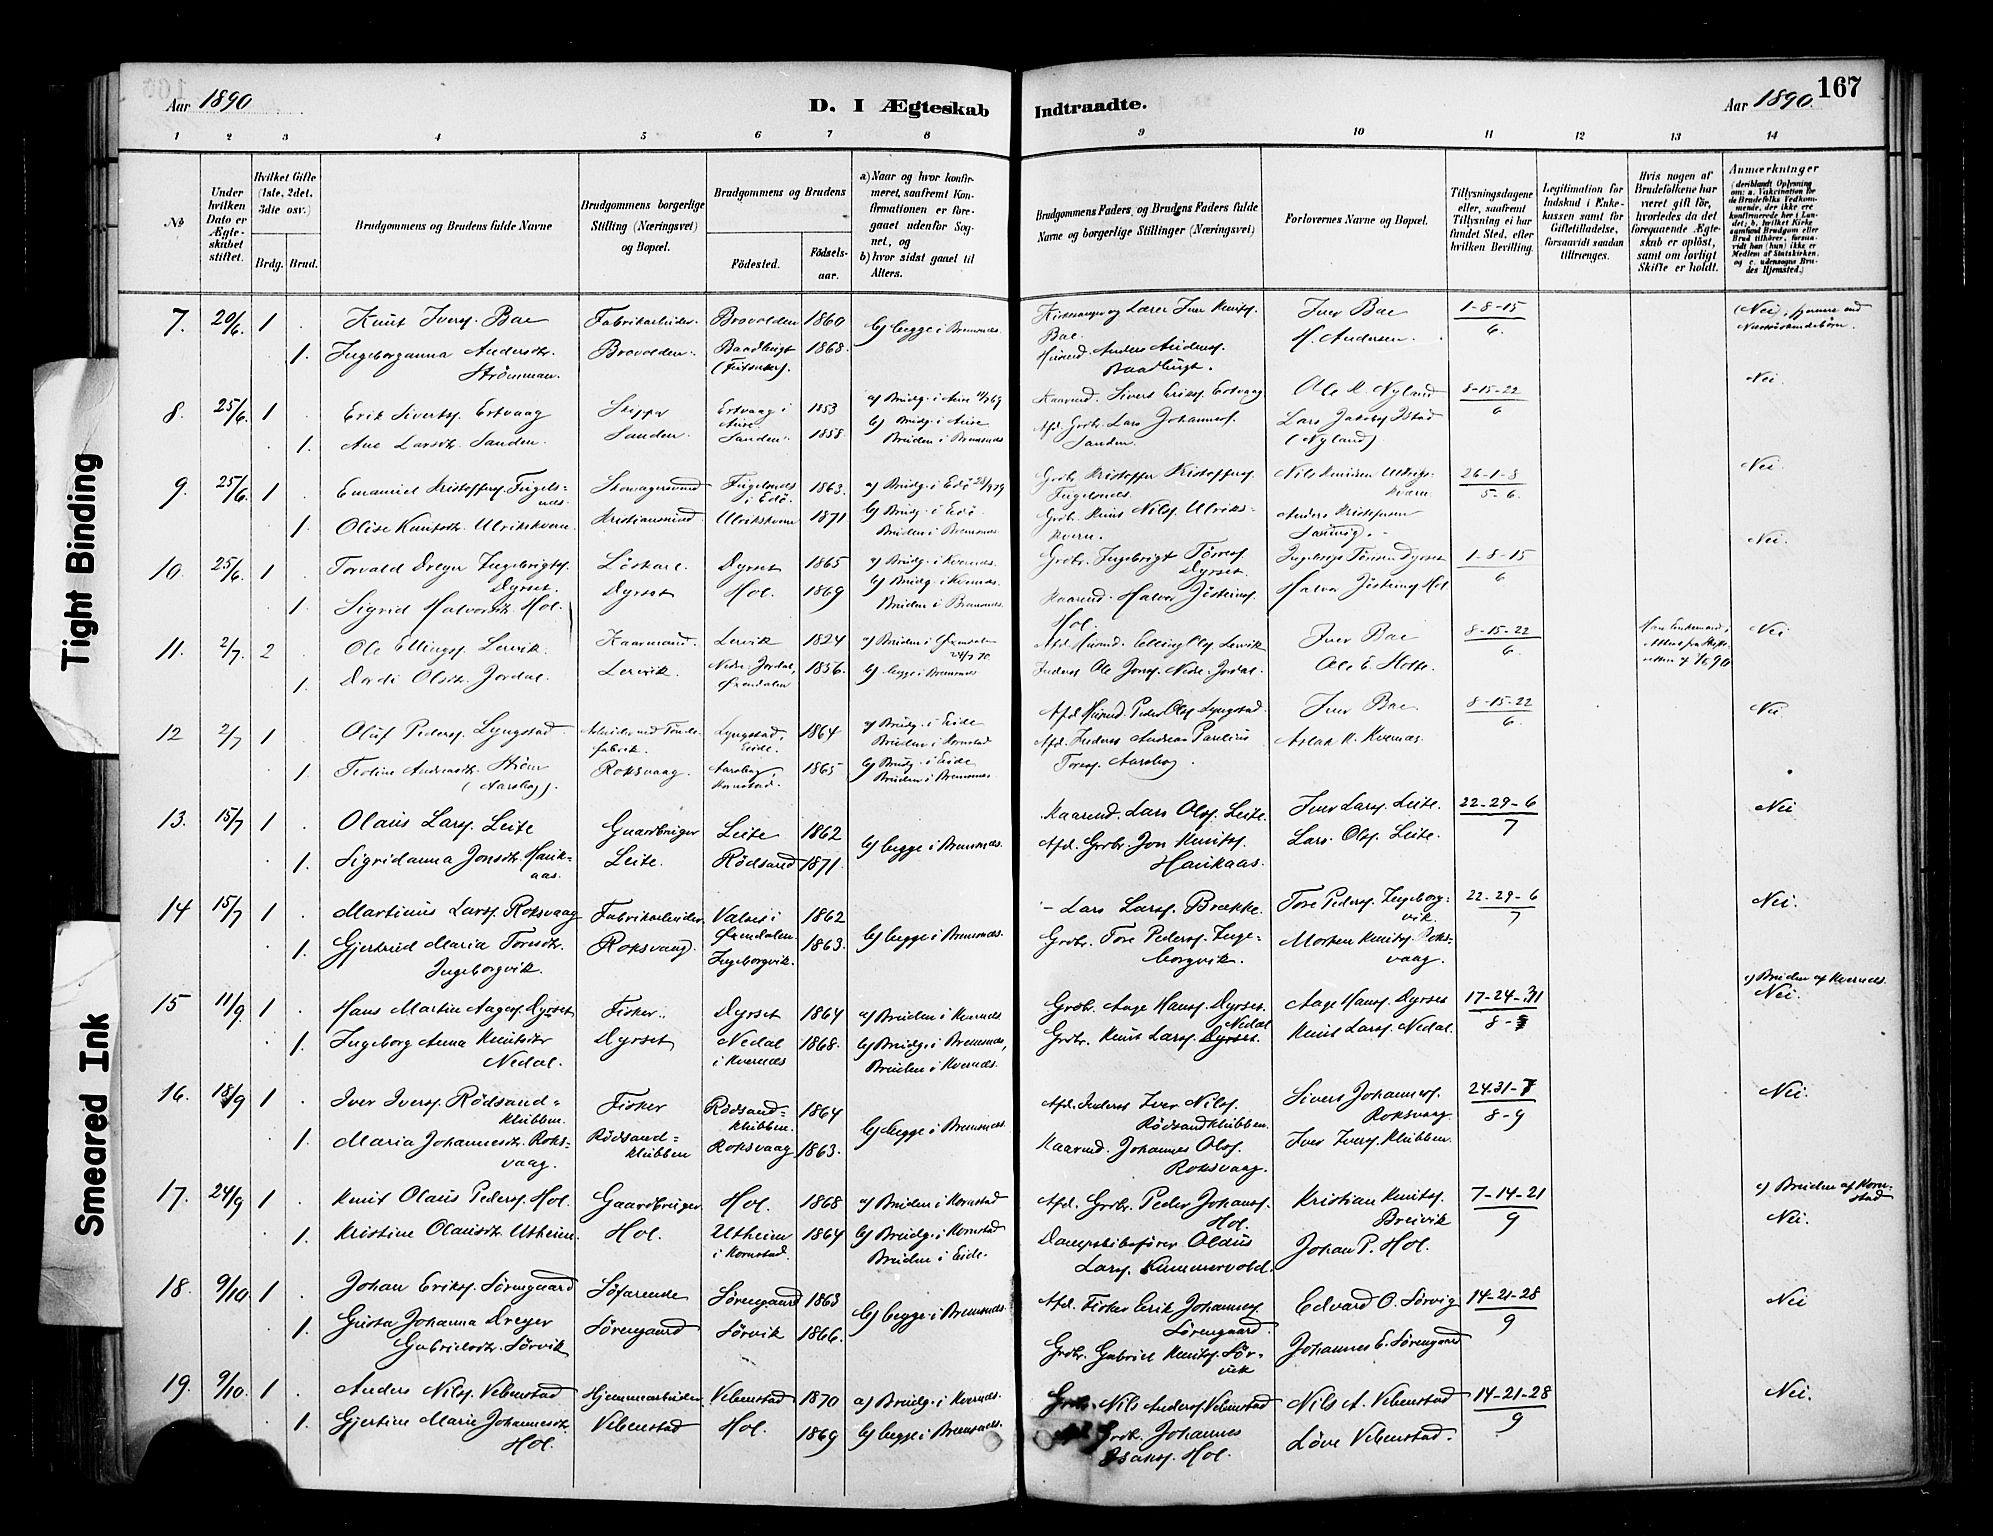 Aar 1890
D. I Ægteskab
Indtraadte.
Aar 1890. 167
1 2 3 4 5 6 7 8 9 10 11 12 13 14
№
Under hvilken Dato er Ægteskabet stiftet.
Hvilket Gifte (1ste, 2det, 3die osv.)
Brdg. Brud.
Brudgommens og Brudens fulde Navne
Brudgommens borgerlige Stilling (Næringsvei) og Bopæl.
Brudgommens og Brudens
Födested.
Födselsaar.
a) Naar og hvor konfirmeret, saafremt Konfirmationen er foregaaet udenfor Sognet, og
b) hvor sidst gaaet til Alters.
Brudgommens Faders og Brudens Faders fulde Navne og borgerlige Stillinger (Næringsvei)
Forlovernes Navne og Bopæl.
Tillysningsdagene eller, saafremt Tillysning ei har fundet Sted, efter hvilken Bevilling.
Legitimation for Indskud i Enkekassen samt for Giftetilladelse, forsaavidt saadan tiltrænges.
Hvis nogen af Brudefolkene har været gift för, hvorledes da det foregaaende Ægteskab er oplöst, samt om lovligt Skifte er holdt.
Anmærkninger
7. 20/6 1 . Knut Ivers. Bae Fabrikarbeider Brovolden 1860 b) begge i Bremsnes. Kirkesanger og Lærer Iver Knuts. Bae. Iver Bae 1-8-15/6.
1. Ingeborganna Andersdtr. Strömmen. Brovolden. 1868. Husmd. Anders Anders. M. Andersen.
8. 25/6 1 . Erik Siverts. Ertvaag Skipper Ertvaag i Aure 1853 a) Brudg. i Aure b) Brudg. i Aure Kaarmd. Sivert Eriks. Ertvaag Ole K. Nyland 8-15-22/6 Nei.
1. Ane Larsdtr. Sanden. Sanden. Sanden. 1858. Bruden i Bremsnes Afd. Grdbr. Lars Johannes. Sanden. Lars Jakobs. (Nyland)
9. 25/6 1 . Emanuel Kristoffers. Fugelsnes. Fugelsnes i Edö. 1863. a) Brudg. i Edö b) Brudg. i Edö Grdbr. Kristoffer Kristoffers. Fugelsnes. Nils Knudsen 26-1-8/5-6. Nei
1. Olise Knutsdtr. Ulrikskvern. Kristiansund. Ulrikskvern 1871 Bruden i Bremsnes Grdbr. Knut Nils. Ulrikskvern.
10. 25/6 1 . Torvald Dreyer Ingebrigts. Dyrset. Löskarl. Dyrset 1865 a) Brudg. i Kvernes. b) Brudg. i Kvernes. Grdbr. Ingebrigt Törres. Dyrset. 1-8-15/6 Nei.
1. Sigrid Halvorsdtr. Hol. Dyrset Hol. 1869 Bruden i Bremsnes Kaarmd. Halvor Jösteins. Hol. Halvor Jösteins. Hol
11. 2/7 2 . Ole Ellings. Lervik Kaarmand. Lervik 1824 a) Bruden i Öxendalen Afd. Husmd. Elling Ols. Lervik Iver Bae 8-15-22/6. Nei
1. Dordi Olsdtr. Jordal. Lervik. Nedre Jordal, Öxendalen 1836. b) begge i Bremsnes Inderst Ole Jons. Nedre Jordal. Ole E.
12 2/7 1 . Oluf Peders. Lyngstad Lyngstad, Eide. 1864 a) Brudg. i Eide Bruden i Kornstad Afd. Husmd. Peder Ols. Lyngstad. Iver Bae 8-15-22/6. Nei
1. Andreasdtr. (Aarsbog). Roksvaag. Aarsbog, Kornstad. 1865 b) Brudg. i Eide Bruden i Bremsnes. Afd. Inderst Andreas Paulius Tores. Aarsbog. Aslak K. Kvernes.
13. 15/7 1 . Olaus Lars. Leite Gaardbruger Leite 1862 b) begge i Bremsnes. Kaarmd. Lars Ols. Leite. Iver Lars. Leite. 22-29-6/7 Nei
1. Sigridanna Jonsdtr. Haukaas. Leite. Rödsand 1871. Afd. Grdbr. Jon Knuts. Haukaas. Lars Ols. Leite.
14 15/7 1 . Martinus Lars. Roksvaag Fabrikarbeider. i Öxendalen. 1862 b) begge i Bremsnes. – Lars Lars. Brække. Tore Peders. Ingeborgvik. 22-29-6/7 Nei.
1. Gjertrud Maria Toresdtr. Ingeborgvik. Roksvaag. Ingeborgvik. 1863. Grdbr. Tore Peders. Ingeborgvik. Morten Knuts. Roksvaag.
15 11/9 1 . Hans Martin Aages. Dyrset Fisker. Dyrset 1864 a) Bruden i Kvernes Grdbr. Aage Hans. Dyrset. Aage Hans. Dyrset 17-24-31/8 c) Bruden af Kvernes. Nei.
1. Ingeborg Anna Knutsdtr Nedal. Dyrset Nedal i Kvernes 1868. b) Brudg. i Bremsnes, Bruden i Kvernes. Grdbr. Knut Lars. Nedal Dyrset. Knut Lars. Nedal.
16. 18/9 1 . Iver Ivers. Rödsandklubben. Fisker Rödsandklubben. 1864 b) begge i Bremsnes. Afd. Inderst Iver Nils. Rödsandklubben. Sivert Johannes. Roksvaag. 24.31-7/8-9 Nei.
1. Maria Johannesdtr. Roksvaag. Rödsandklubben Roksvaag 1863. Kaarmd. Johannes Ols. Roksvaag. Iver Ivers. Klubben.
17. 24/9 1 . Knut Olaus Peders. Hol. Gaardbruger. Hol. 1868 a) Bruden i Kornstad Afd. Grdbr. Peder Johans. Hol. Kristian Knuts. Breivik 7-14-21/9 c) Bruden af Kornstad Nei.
1. Kristine Olausdtr. Utheim. Hol. Utheim i Kornstad. 1864 b) Brudg. i Kornstad Bruden i Eide. Dampskibsförer Olaus Lars. Kummervold. Johan P. Hol.
18. 9/10 1 . Johan Eriks. Sörengaard Söfarende Sörengaard 1863 b) begge i Bremsnes. Afd. Fisker Erik Johannes. Sörengaard. Edvard O. Sörvig 14-21-28/9 Nei
1. Gusta Johanna Dreyer Gabrielsdtr. Sörvik Sörengaard Sörvik 1866. Grdbr. Gabriel Knuts. Sörvik Johannes E. Sörengaard
19. 9/10. 1 . Anders Nils. Vebenstad Hjemmearbeider. Vebenstad 1870 a) Brudg. i Kvernes. Grdbr. Nils Anders. Vebenstad Nils A. Vebenstad 14-21-28/9 Nei.
1. Gjertine Marie Johannesdtr. Hol. Vebenstad Hol. 1869 b) begge i Bremsnes. Grdbr. Johannes Isaks. Hol. Löve Vebenstad.
Tight Binding
Smeared Ink